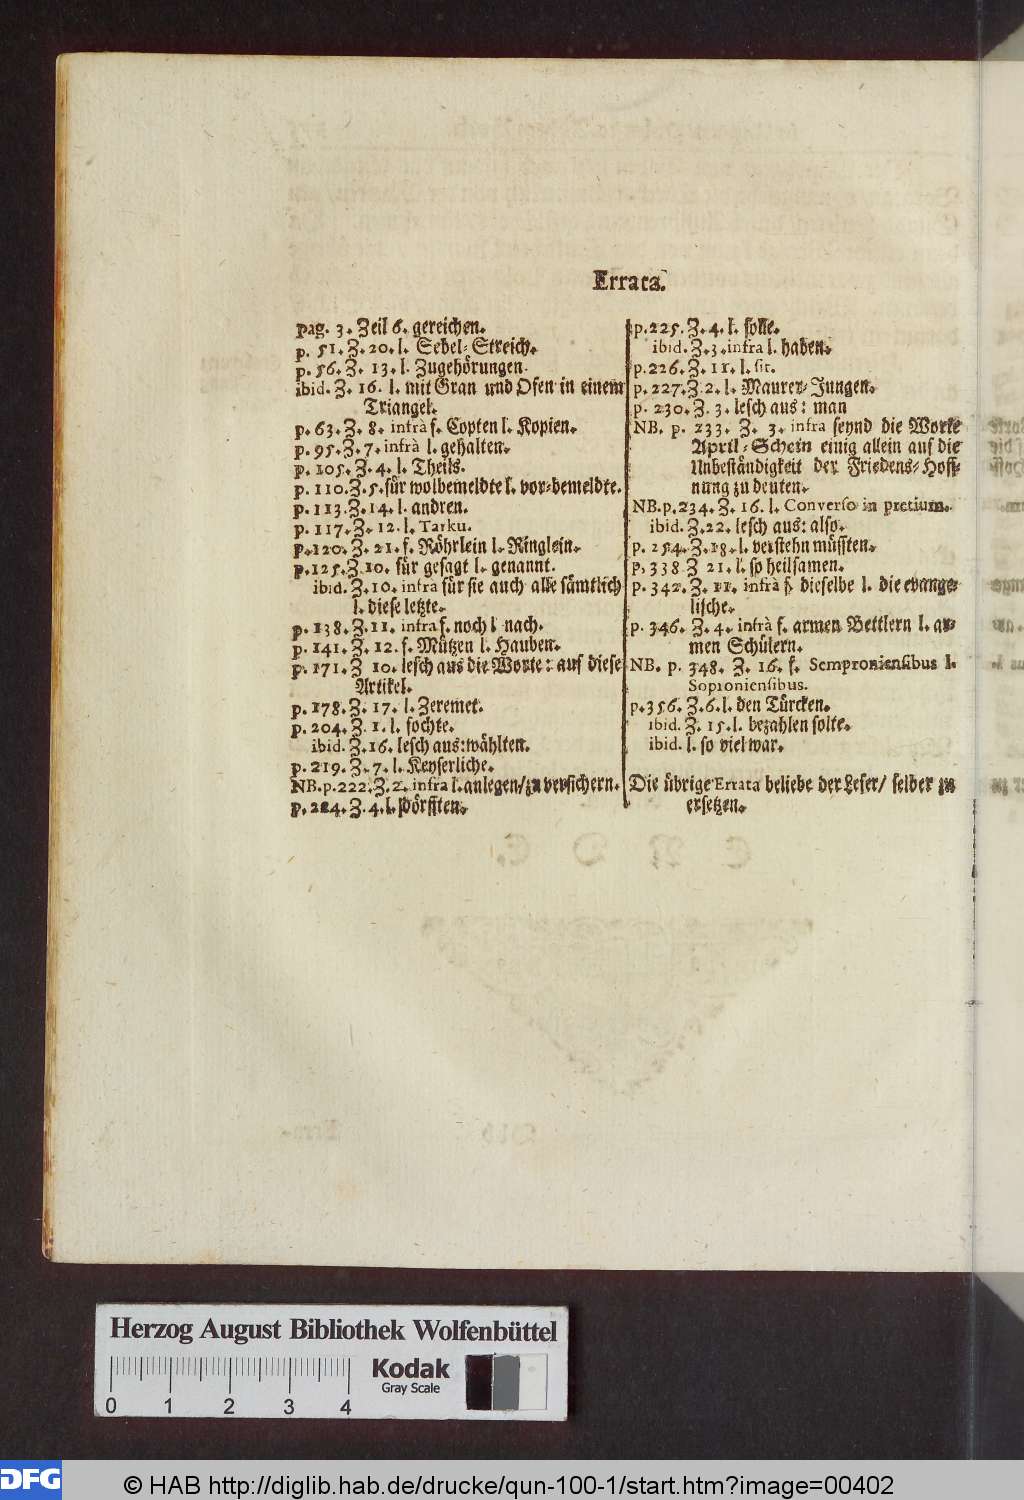 Errata.
pag. 3. Zeil 6. gereichen.
p. 51. Z. 20. l. Sebel-Streich.
p. 56. Z. 13. l. Zugehörungen.
ibid. Z. 16. l. mit Gran und Ofen in einem
Triangel.
p. 63. Z. 8. infrà f. Copten l. Kopien.
p. 95. Z. 7. infrà l. gehalten.
p. 105. Z. 4. l. Theils.
p. 110. Z. 5. für wolbemeldte l. vor-bemeldte.
p. 113. Z. 14. l. andren.
p. 117. Z. 12. l. Tarku.
p. 120. Z. 21. f. Röhrlein l. Ringlein.
p. 125. Z. 10. für gesagt l. genannt.
ibid. Z. 10. infra für sie auch alle sämtlich
l. diese letzte.
p. 138. Z. 11. infra f. noch l nach.
p. 141. Z. 12. f. Mützen l. Hauben.
p. 171. Z 10. lesch aus die Worte: auf diese
Artikel.
p. 178. Z. 17. l. Zeremet.
p. 204. Z. 1. l. fochte.
ibid. Z. 16. lesch aus: wählten.
p. 219. Z. 7. l. Keyserliche.
NB. p. 222. Z. 2. infra l. anlegen/ zu versichern.
p. 224. Z. 4. l. dörfften.
p. 225. Z. 4. l. solle.
ibid. Z. 3. infra l. haben.
p. 226. Z. 11. l. sit.
p. 227. Z. 2. l. Maurer-Jungen.
p. 230. Z. 3. lesch aus: man
NB. p. 233. Z. 3. infra seynd die Worte
April-Schein einig allein auf die
Unbeständigkeit der Friedens-Hoff-
nung zu deuten.
NB. p. 234. Z. 16. l. Converso in pretium.
ibid. Z. 22. lesch aus: also.
p. 254. Z. 18. l. verstehn müssten.
p. 338 Z 21. l. so heilsamen.
p. 342. Z. 11. infrà f. dieselbe l. die evange-
lische.
p. 346. Z. 4. infrà f. armen Bettlern l. ar-
men Schülern.
NB. p. 348. Z. 16. f. Semproniensibus l.
Soproniensibus.
p. 356. Z. 6. l. den Türcken.
ibid. Z. 15. l. bezahlen solte.
ibid. l. so viel war.
Die übrige Errata beliebe der Leser/ selber zu
ersetzen.
Herzog August Bibliothek Wolfenbüttel
Kodak
Gray Scale
0 1 2 3 4
DFG
© HAB http://diglib.hab.de/drucke/qun-100-1/start.htm?image=00402